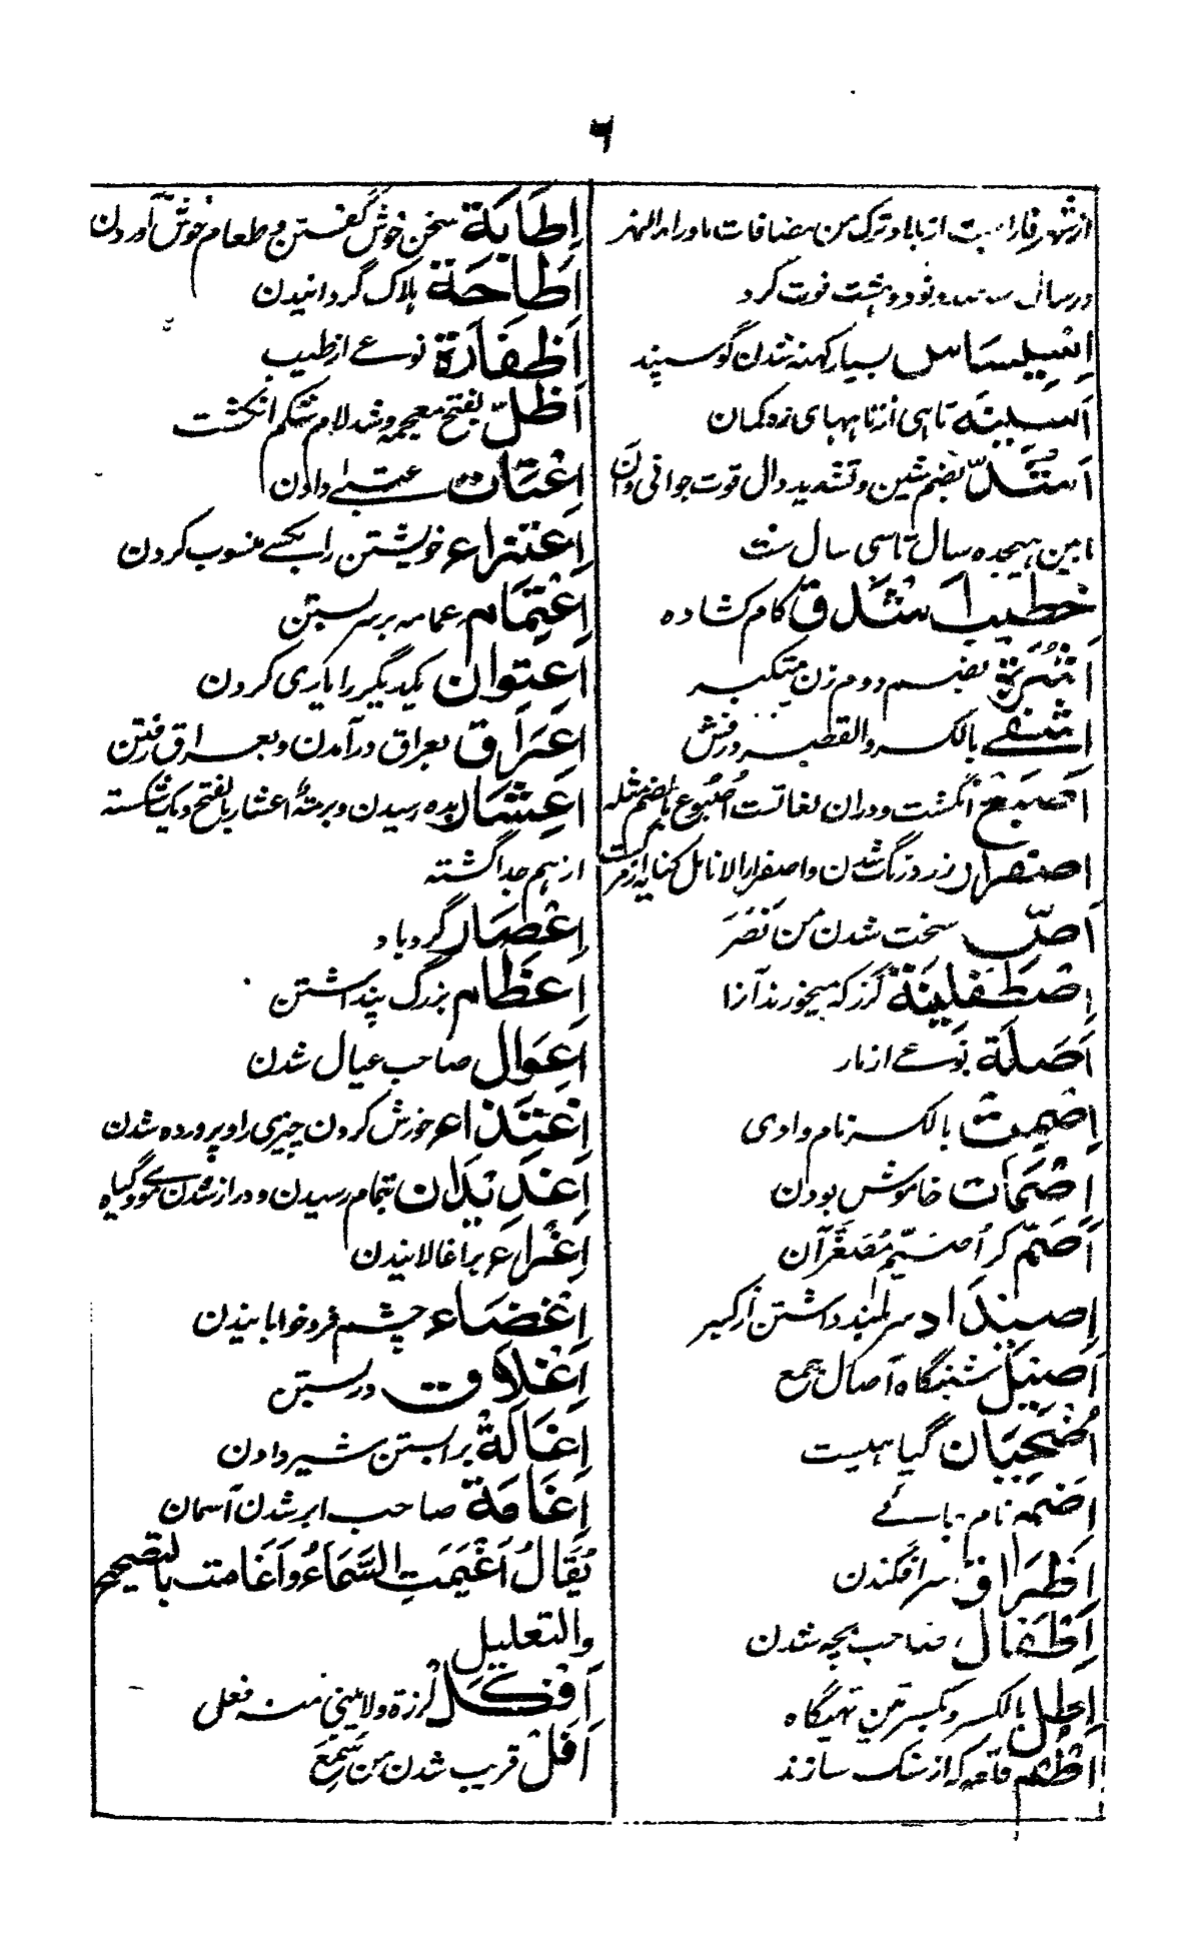 ٦
ازشهر فاراب ست از بلاد ترک من مضافات ماوراء النهر
در سال سه صد و نود و هشت فوت کرد
اِسْلِيسَاس بسیار کهنه شدن گوسپند
اَسِينَه تاهی از تاههای زه کمان
اَشُدّ بضم شین و تشدید دال قوت جوانی و آن
ما بین هیجده سال تا سی سال ست
خطيب اَشْدَق کام کشاده
بضم دوم زن متکبر
اِشْفٰے بالکسر والقصر درفش
اَصْبَع انگشت و دران لغاتست اُصْبُوع بالضم مثله
اصفرار زرد رنگ شدن و اصفرار الانامل کنایه از مرگ ست
اَصّ سخت شدن من نَصَرَ
اِصْطَفْلِينَة گزر که میخورند آنرا
اَصَلَة نوعے از مار
اِصْمِت بالکسر نام وادی
اِصْمَات خاموش بودن
اَصَمّ کر اُصَيْمّ مُصَغَّر آن
اِصْيِدَاد سر بلند داشتن از کبر
اَصِيْل شبنگاه آصال جمع
اُضْحِيَان گیاهیست
اَضَمه نام
اِطْرَاق سر افگندن
اِطْفَال صاحب بچه شدن
اِطِل بالکسر و بکسرتین تهیگاه
اُطُم قلعه که از سنگ سازند
اِطَابَة سخن خوش گفتن و طعام خوش آوردن
اِطَاحَة هلاک گردانیدن
اَظْفَارَة نوعے از طیب
اَظَلّ بفتح معجمه و شد لام شکم انگشت
اِعْتَاب عتبے دادن
اِعْتِزَاء خویشتن را بکسے منسوب کردن
اِعْتِمَام عمامه بر سر بستن
اِعْتِوَان یکدیگر را یاری کردن
اِعْرَاق بعراق درآمدن و بعراق رفتن
اِعْشَار بده رسیدن و برمة اعشار بالفتح دیگ شکسته
از هم جدا گشته
اِعْصَار گردباد
اِعْظَام بزرگ پنداشتن
اِعْوَال صاحب عیال شدن
اِغْتِذَاء خورش کردن چیزی را و پرورده شدن
اِغْدِيدَان بتمام رسیدن و دراز شدن موے و گیاه
اِغْرَاء بر اغالانیدن
اِغْضَاء چشم فرو خوابانیدن
اِغْلَاق در بستن
اِغَالَة بر آبستن شیر دادن
اِغَامَة صاحب ابر شدن آسمان
يُقَالُ اَغْيَمَتِ السَّمَاءُ وَاَغَامَت بالتصحیح
والتعلیل
اَفْکَل لرزه ولا یبنی منه فعل
اَفَل قریب شدن من سَمِعَ